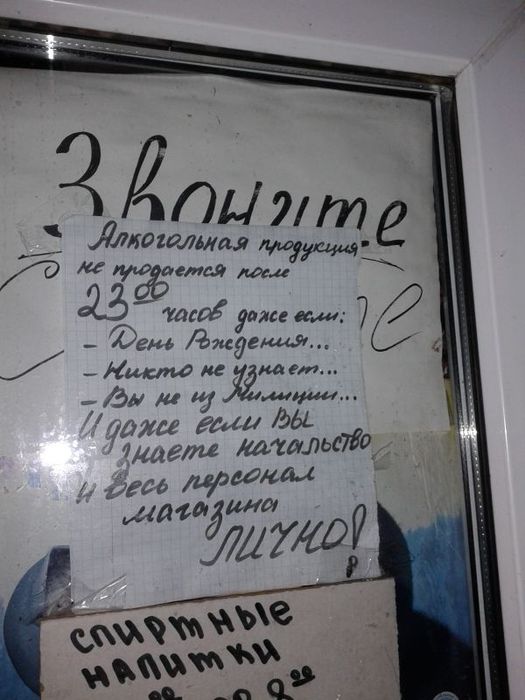 Звоните
Алкогольная продукция
не продается после
23⁰⁰ часов даже если:
- День Рождения...
- Никто не узнает...
- Вы не из Милиции...
И даже если ВЫ
знаете начальство
и весь персонал
магазина
ЛИЧНО!
спиртные
напитки